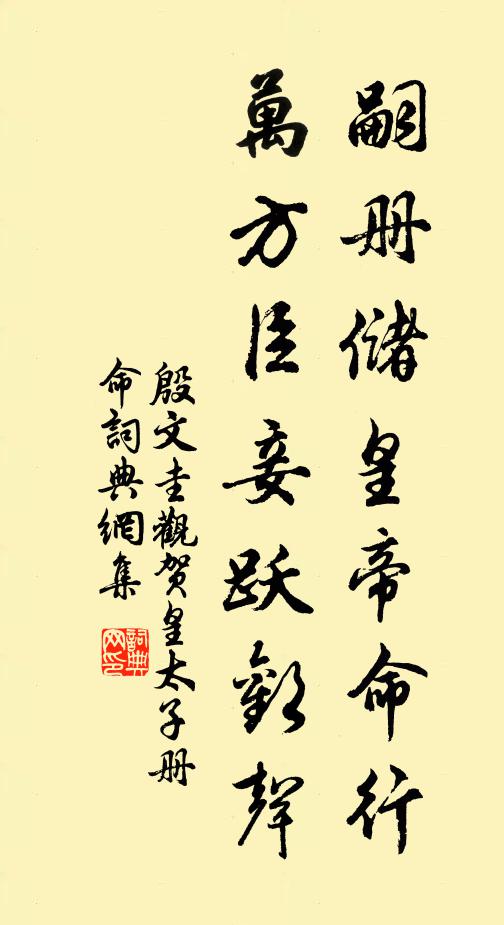 嗣册儲皇帝命行
萬方臣妾跃歡聲
殷文圭觀賀皇太子册
命詞典網集
詞典网印